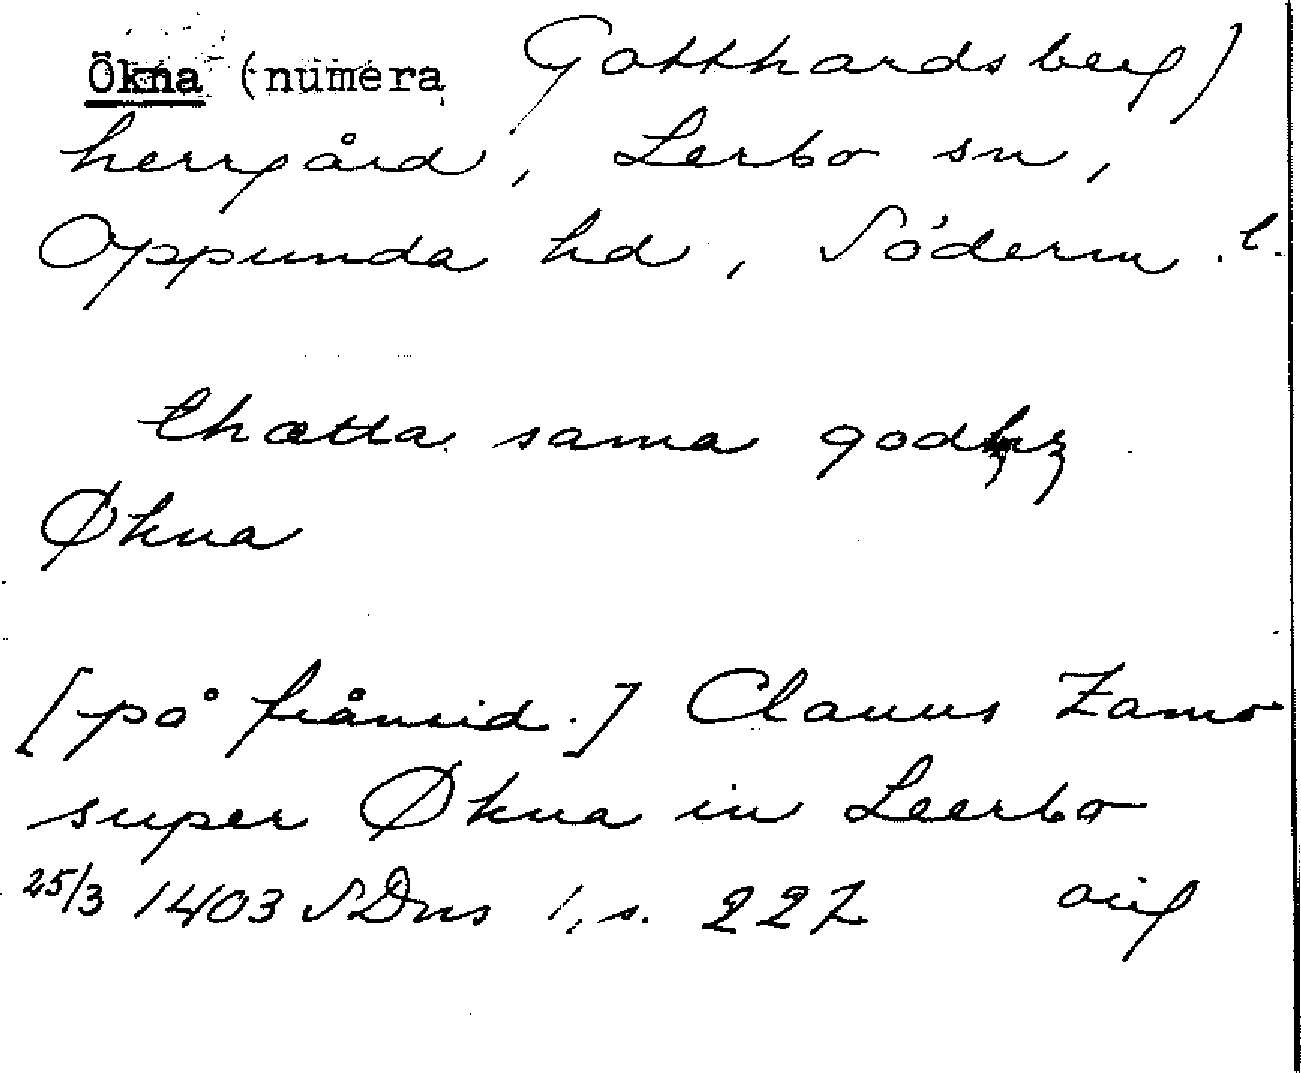 Ökna (numera Gotthardsberg)
herrgård, Lerbo sn,
Oppunda hd, Söderm. l.
thætta sama godhz
Økna
[på frånsid.] Clauus Zamo
super Økna in Leerbo
25/3 1403 SDns 1, s. 227 orig